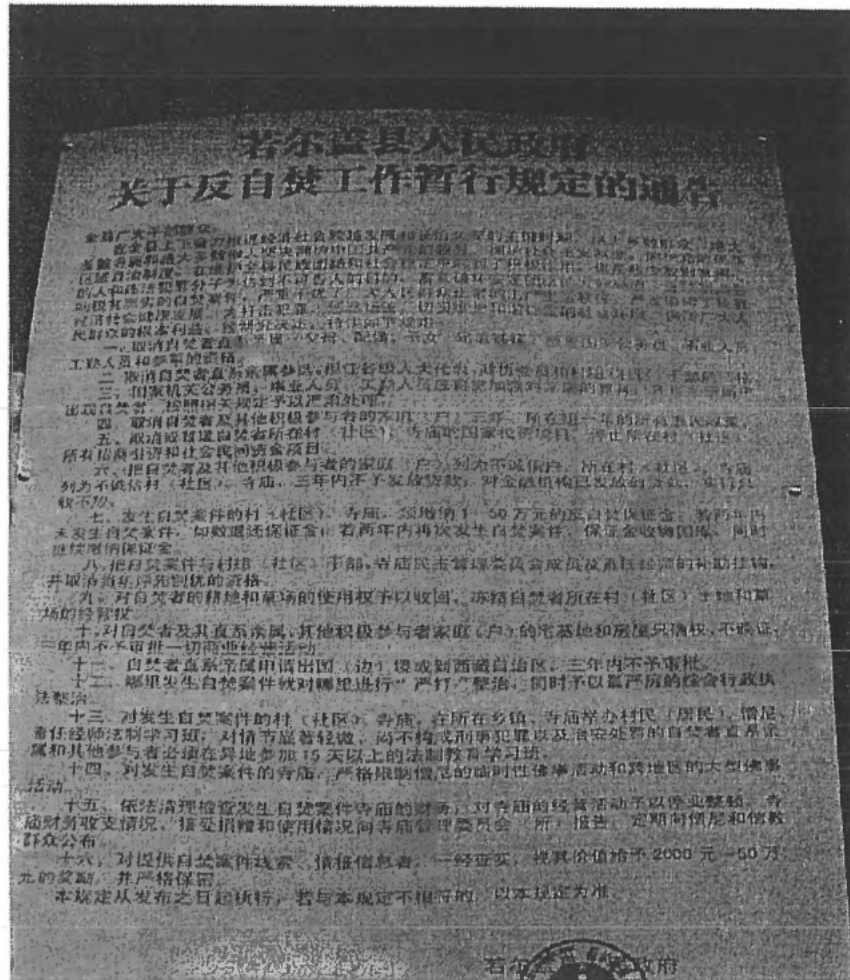 若尔盖县人民政府
关于反自焚工作暂行规定的通告
全县广大干部群众:
在全县上下奋力推进经济社会跨越发展和长治久安的关键时期,
区域自治制度,在维护全县民族团结和社会稳定中起到了积极作用,
的人和违法犯罪分子为达到不可告人的目的,
经济社会健康发展。为打击犯罪,
民群众的根本利益,经研究决定,特作如下规定:
一、取消自焚者直系亲属(父母、配偶、子女、兄弟姐妹) 国家公务员、事业人员、
工勤人员和参军的资格。
二、取消自焚者直系亲属参选、担任各级人大代表、政协委员和村组(社区)干部的资格。
三、国家机关公务员、事业人员、工勤人员
出现自焚者,按照相关规定予以严肃处理。
四、取消自焚者及其他积极参与者的家庭(户)三年、所在组一年的所有惠民政策。
五、取消或暂缓自焚者所在村(社区)、寺庙的国家投资项目,停止所在村(社区)、
所有招商引资和社会民间资金项目。
六、把自焚者及其他积极参与者的家庭(户)列为不诚信户,所在村(社区)、寺庙
列为不诚信村(社区)、寺庙,三年内不予发放贷款,对金融机构已发放的贷款,实行只
收不放。
七、发生自焚案件的村(社区)、寺庙,须缴纳1—50万元的反自焚保证金,若两年内
未发生自焚案件,如数退还保证金;若两年内再次发生自焚案件,保证金收缴国库,同时
继续缴纳保证金。
八、把自焚案件与村组(社区)干部、寺庙民主管理委员会成员及责任经师的补助挂钩,
并取消当年评先创优的资格。
九、对自焚者的耕地和草场的使用权予以收回,冻结自焚者所在村(社区)土地和草
场的经营权。
十、对自焚者及其直系亲属、其他积极参与者家庭(户)的宅基地和房屋只清权、不颁证,
三年内不予审批一切商业经营活动。
十一、自焚者直系亲属申请出国(边)境或到西藏自治区,三年内不予审批。
十二、哪里发生自焚案件就对哪里进行"严打"整治,同时予以最严厉的综合行政执
法整治。
十三、对发生自焚案件的村(社区)、寺庙,在所在乡镇、寺庙举办村民(居民)、僧尼、
责任经师法制学习班;对情节显著轻微、尚不构成刑事犯罪以及治安处罚的自焚者直系亲
属和其他参与者必须在异地参加15天以上的法制教育学习班。
十四、对发生自焚案件的寺庙,严格限制僧尼的临时性佛事活动和跨地区的大型佛事
活动。
十五、依法清理检查发生自焚案件寺庙的财务,对寺庙的经营活动予以停业整顿。寺
庙财务收支情况、接受捐赠和使用情况向寺庙管理委员会(所)报告,定期向僧尼和信教
群众公布。
十六、对提供自焚案件线索、情报信息者,一经查实,视其价值给予2000元—50万
元的奖励,并严格保密。
本规定从发布之日起执行,若与本规定不相符的,以本规定为准。
若尔 政府